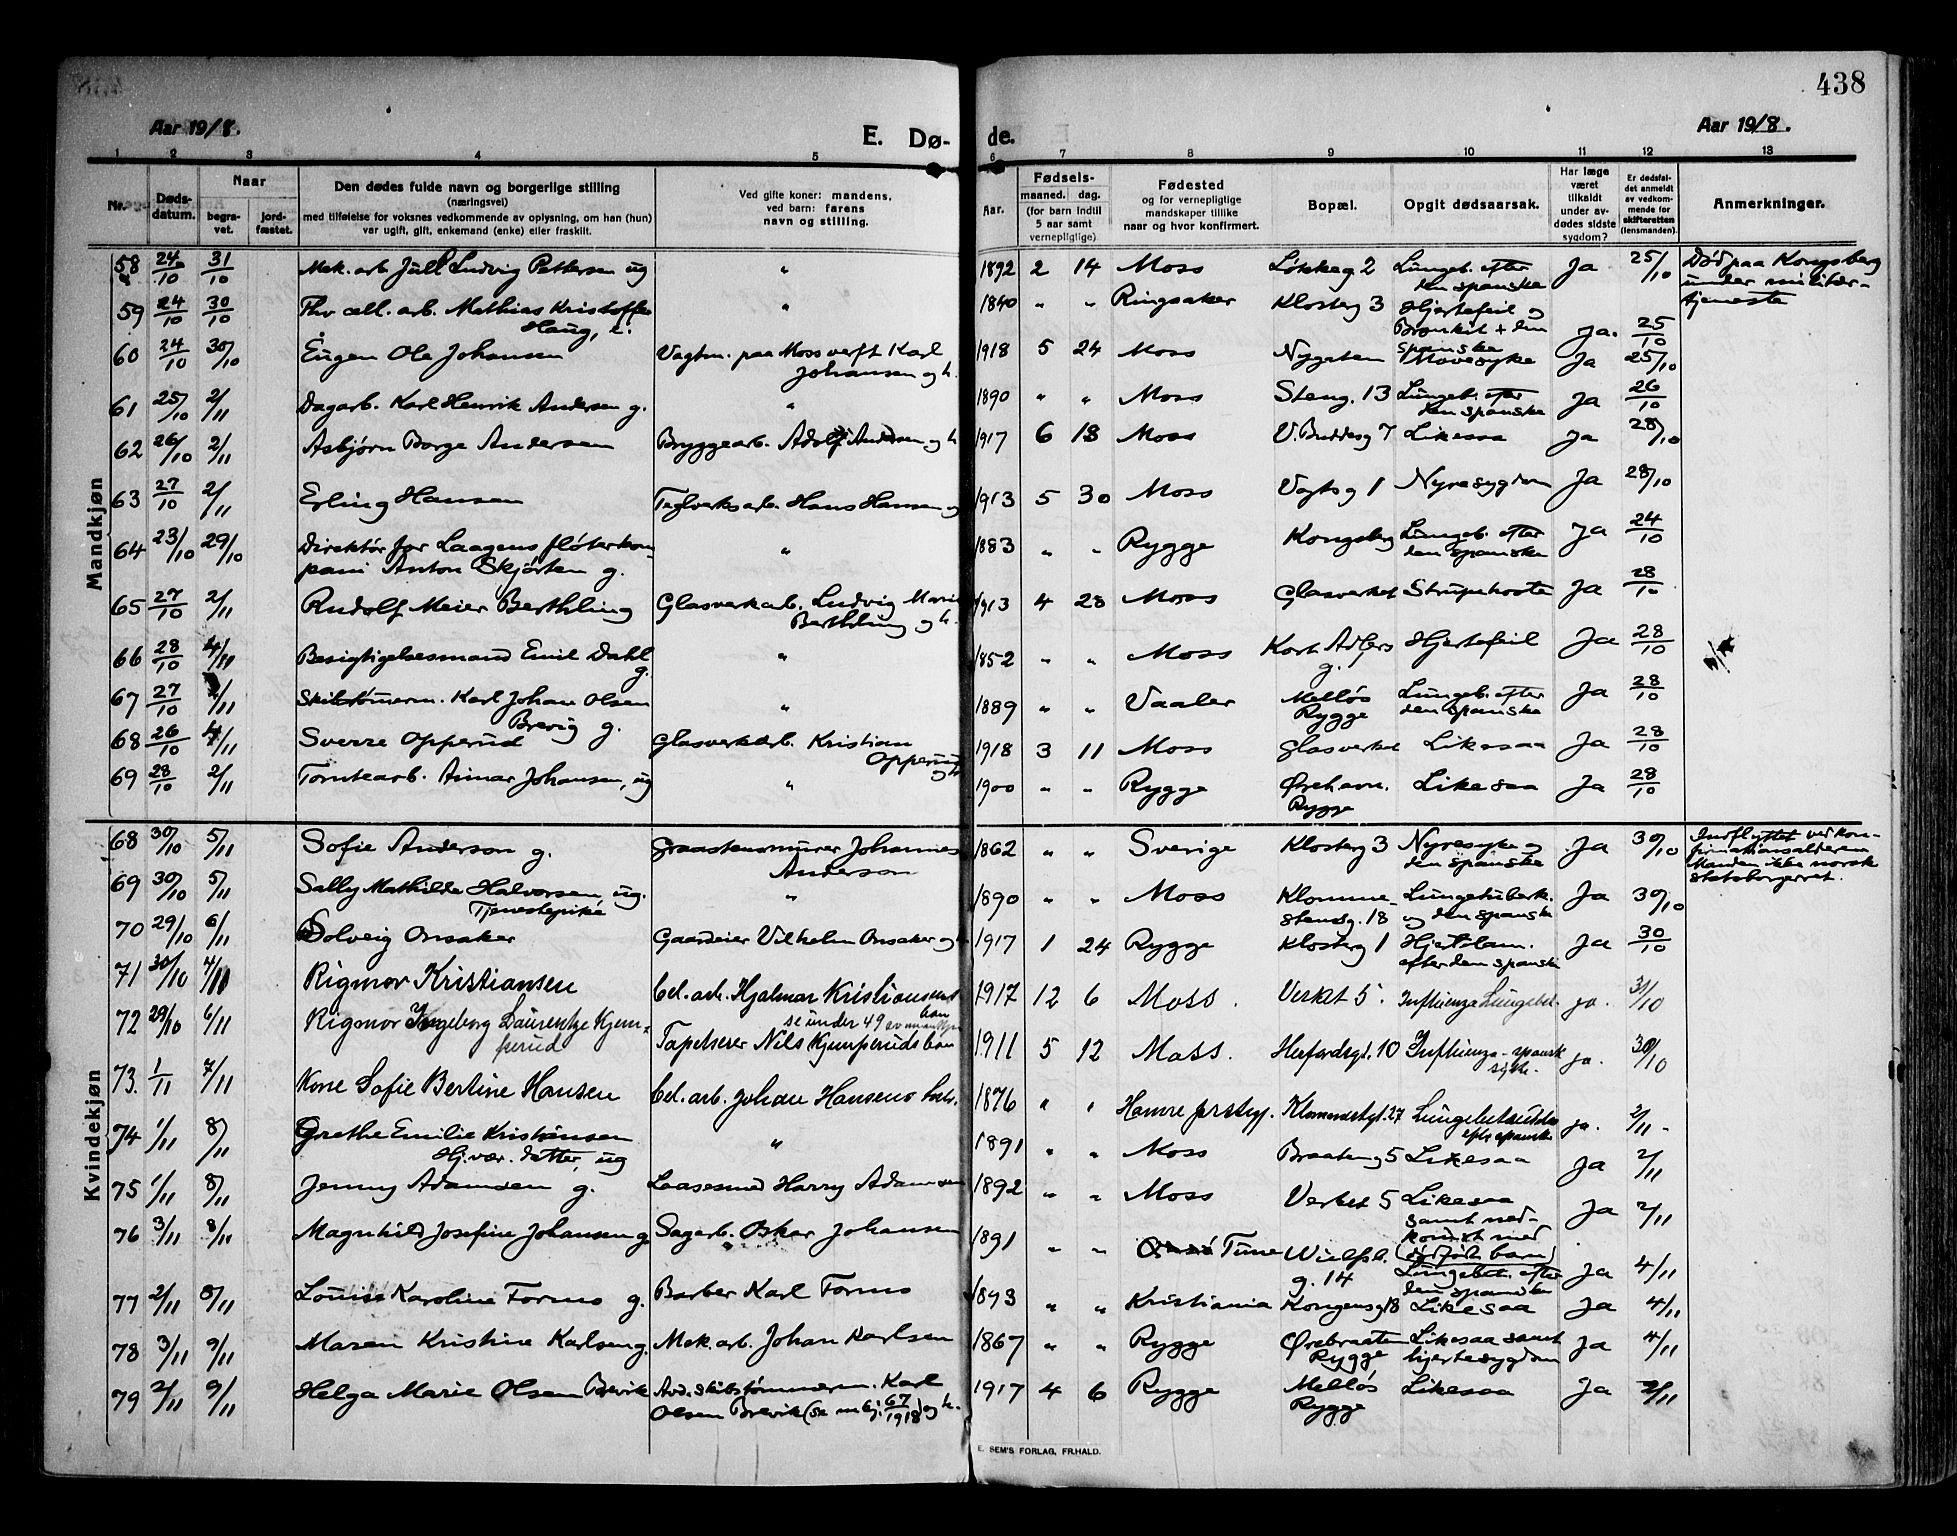 438
Aar 1918.
E. Dø-
de.
Aar 1918.
1 2 3 4 5 6 7 8 9 10 11 12 13
Nr.
Døds-
datum.
Naar
begra-
vet.
jord-
fæstet.
Den dødes fulde navn og borgerlige stilling
(næringsvei)
med tilføielse for voksnes vedkommende av oplysning, om han (hun)
var ugift, gift, enkemand (enke) eller fraskilt.
Ved gifte koner: mandens,
ved barn: farens
navn og stilling.
Aar.
Fødsels-
maaned. dag.
(for barn indtil
5 aar samt
vernepligtige)
Fødested
og for vernepligtige
mandskaper tillike
naar og hvor konfirmert.
Bopæl.
Opgit dødsaarsak.
Har læge
været
tilkaldt
under av-
dødes sidste
sygdom?
Er dødsfal-
det anmeldt
av vedkom-
mende for
skifteretten
(lensmanden).
Anmerkninger.
Mandkjøn
58 24/10 31/10 Mek. arb. Jull Ludvig Pettersen ug " 1892 2 14 Moss Løkkeg 2 Lungeb. efter Ja 25/10 Død paa Kongsberg
den spanske under militær-
59 24/10 30/10 Fhv cell. arb. Mathias Kristoffer " 1840 " " Ringsaker Klosterg 3 Hjertefeil og tjeneste
Haug, e. Bronkit + den Ja. 25/10
spanske
60 24/10 30/10 Eugen Ole Johansen Vagtm. paa Moss verft Karl 1918 5 24 Moss Nygaten Mavesyke Ja 25/10
Johansen og h.
61 25/10 2/11 Dagarb. Karl Henrik Andersen g. " 1890 " " Moss Steng. 13 Lungeb. efter Ja 26/10
den spanske
62 26/10 2/11 Asbjørn Borge Andersen Bryggearb. Adolf Andersen og h 1917 6 18 Moss V. Buddesg 7 Likesaa Ja 28/10
63 27/10 2/11 Erling Hansen Teglverksarb. Hans Hansen og 1913 5 30 Moss Vogtsg 1 Nyresygdom Ja 28/10
64 23/10 29/10 Direktør for Laagens fløterkom- " 1883 " " Rygge Kongsberg Lungeb. efter Ja 24/10
pani Anton Skjørten g. den spanske
65 27/10 2/11 Rudolf Meier Berthling Glasverkarb. Ludvig Marin 1913 4 28 Moss Glasverket Strupehoste Ja 28/10
Berthling og h.
66 28/10 4/11 Besigtigelsesmand Emil Dahl " 1852 " " Moss Kort Adlers Hjertefeil Ja 28/10
g. g.
67 27/10 2/11 Skibstømerm. Karl Johan Olsen " 1889 " " Vaaler Melløs Lungeb. efter Ja 28/10
Brevig g. Rygge den spanske
68 26/10 4/11 Sverre Opperud Glasverkarb. Kristian 1918 3 11 Moss Glasverket Likesaa Ja 28/10
Opperud og h
69 28/10 2/11 Tomtearb. Aimar Johansen, ug " 1900 " " Rygge Ørehavn. Likesaa Ja 28/10
Rygge
Kvindekjøn
68 30/10 5/11 Sofie Anderson g. Graastensmurer Johannes 1862 " " Sverige Klosterg 3 Nyresyke og Ja 30/10 Indflyttet ved kon-
Anderson den spanske firmationsalderen
Manden ikke norsk
statsborgerret.
69 30/10 5/11 Sally Mathilde Halvorsen, ug. " 1890 " " Moss Klomme- Lungetuberk. Ja 30/10
Tjenestepike stensg. 18 og den spanske
70 29/10 6/11 Solveig Onsaker Gaardeier Vilhelm Onsaker og h 1917 1 24 Rygge Klosterg 1 Hjertelam. Ja 30/10
efter den spanske
71 30/10 4/11 Rigmor Kristiansen Cel. arb. Hjalmar Kristiansens 1917 12 6 Moss. Verket 5. Influenza Lungebet. ja. 31/10
barn
se under 49 av mandkjøn
72 29/10 6/11 Rigmor Ingeborg Laurentze Kjem- Tapetserer Nils Kjemperuds barn 1911 5 12 Moss. Herfordsgt. 10 Influenza - spansk ja. 30/10
perud syke.
73. 1/11 7/11 Kone Sofie Bertine Hansen Cel. arb. Johan Hansens hustr. 1876 " " Hamre prstgj. Klommestgt. 27 Lungebetændelse ja. 2/11 -
eftr spanske
74 1/11 8/11 Grethe Emilie Kristiansen " 1891 " " Moss Braateng 5 Likesaa Ja 2/11
Hj.vær. datter, ug
75 1/11 8/11 Jenny Adamsen g. Laasesmed Harry Adamsen 1892 " " Moss Verket 5 Likesaa Ja 2/11
samt ned-
komst med
(dødfødt barn)
76 3/11 8/11 Magnhild Josefine Johansen g Sagarb. Oskar Johansen 1891 " " Tune Wulfsb. Lungebet. efter Ja 4/11
g. 14 den spanske
77 2/11 8/11 Louise Karoline Formo g. Barber Karl Formo 1893 " " Kristiania Kongensg 18 Likesaa Ja 4/11
78 3/11 9/11 Maren Kristine Karlsen g. Mek. arb. Johan Karlsen 1867 " " Rygge Ørebraaten Likesaa samt Ja 4/11
Rygge hjertesygdom
79 2/11 9/11 Helga Marie Olsen Brevik Avd. skibstømmerm. Karl 1917 4 6 Rygge Melløs Likesaa Ja 2/11
Olsen Brevik (se mkj. 67/1918) og h. Rygge
E. SEM'S FORLAG, FR.HALD.